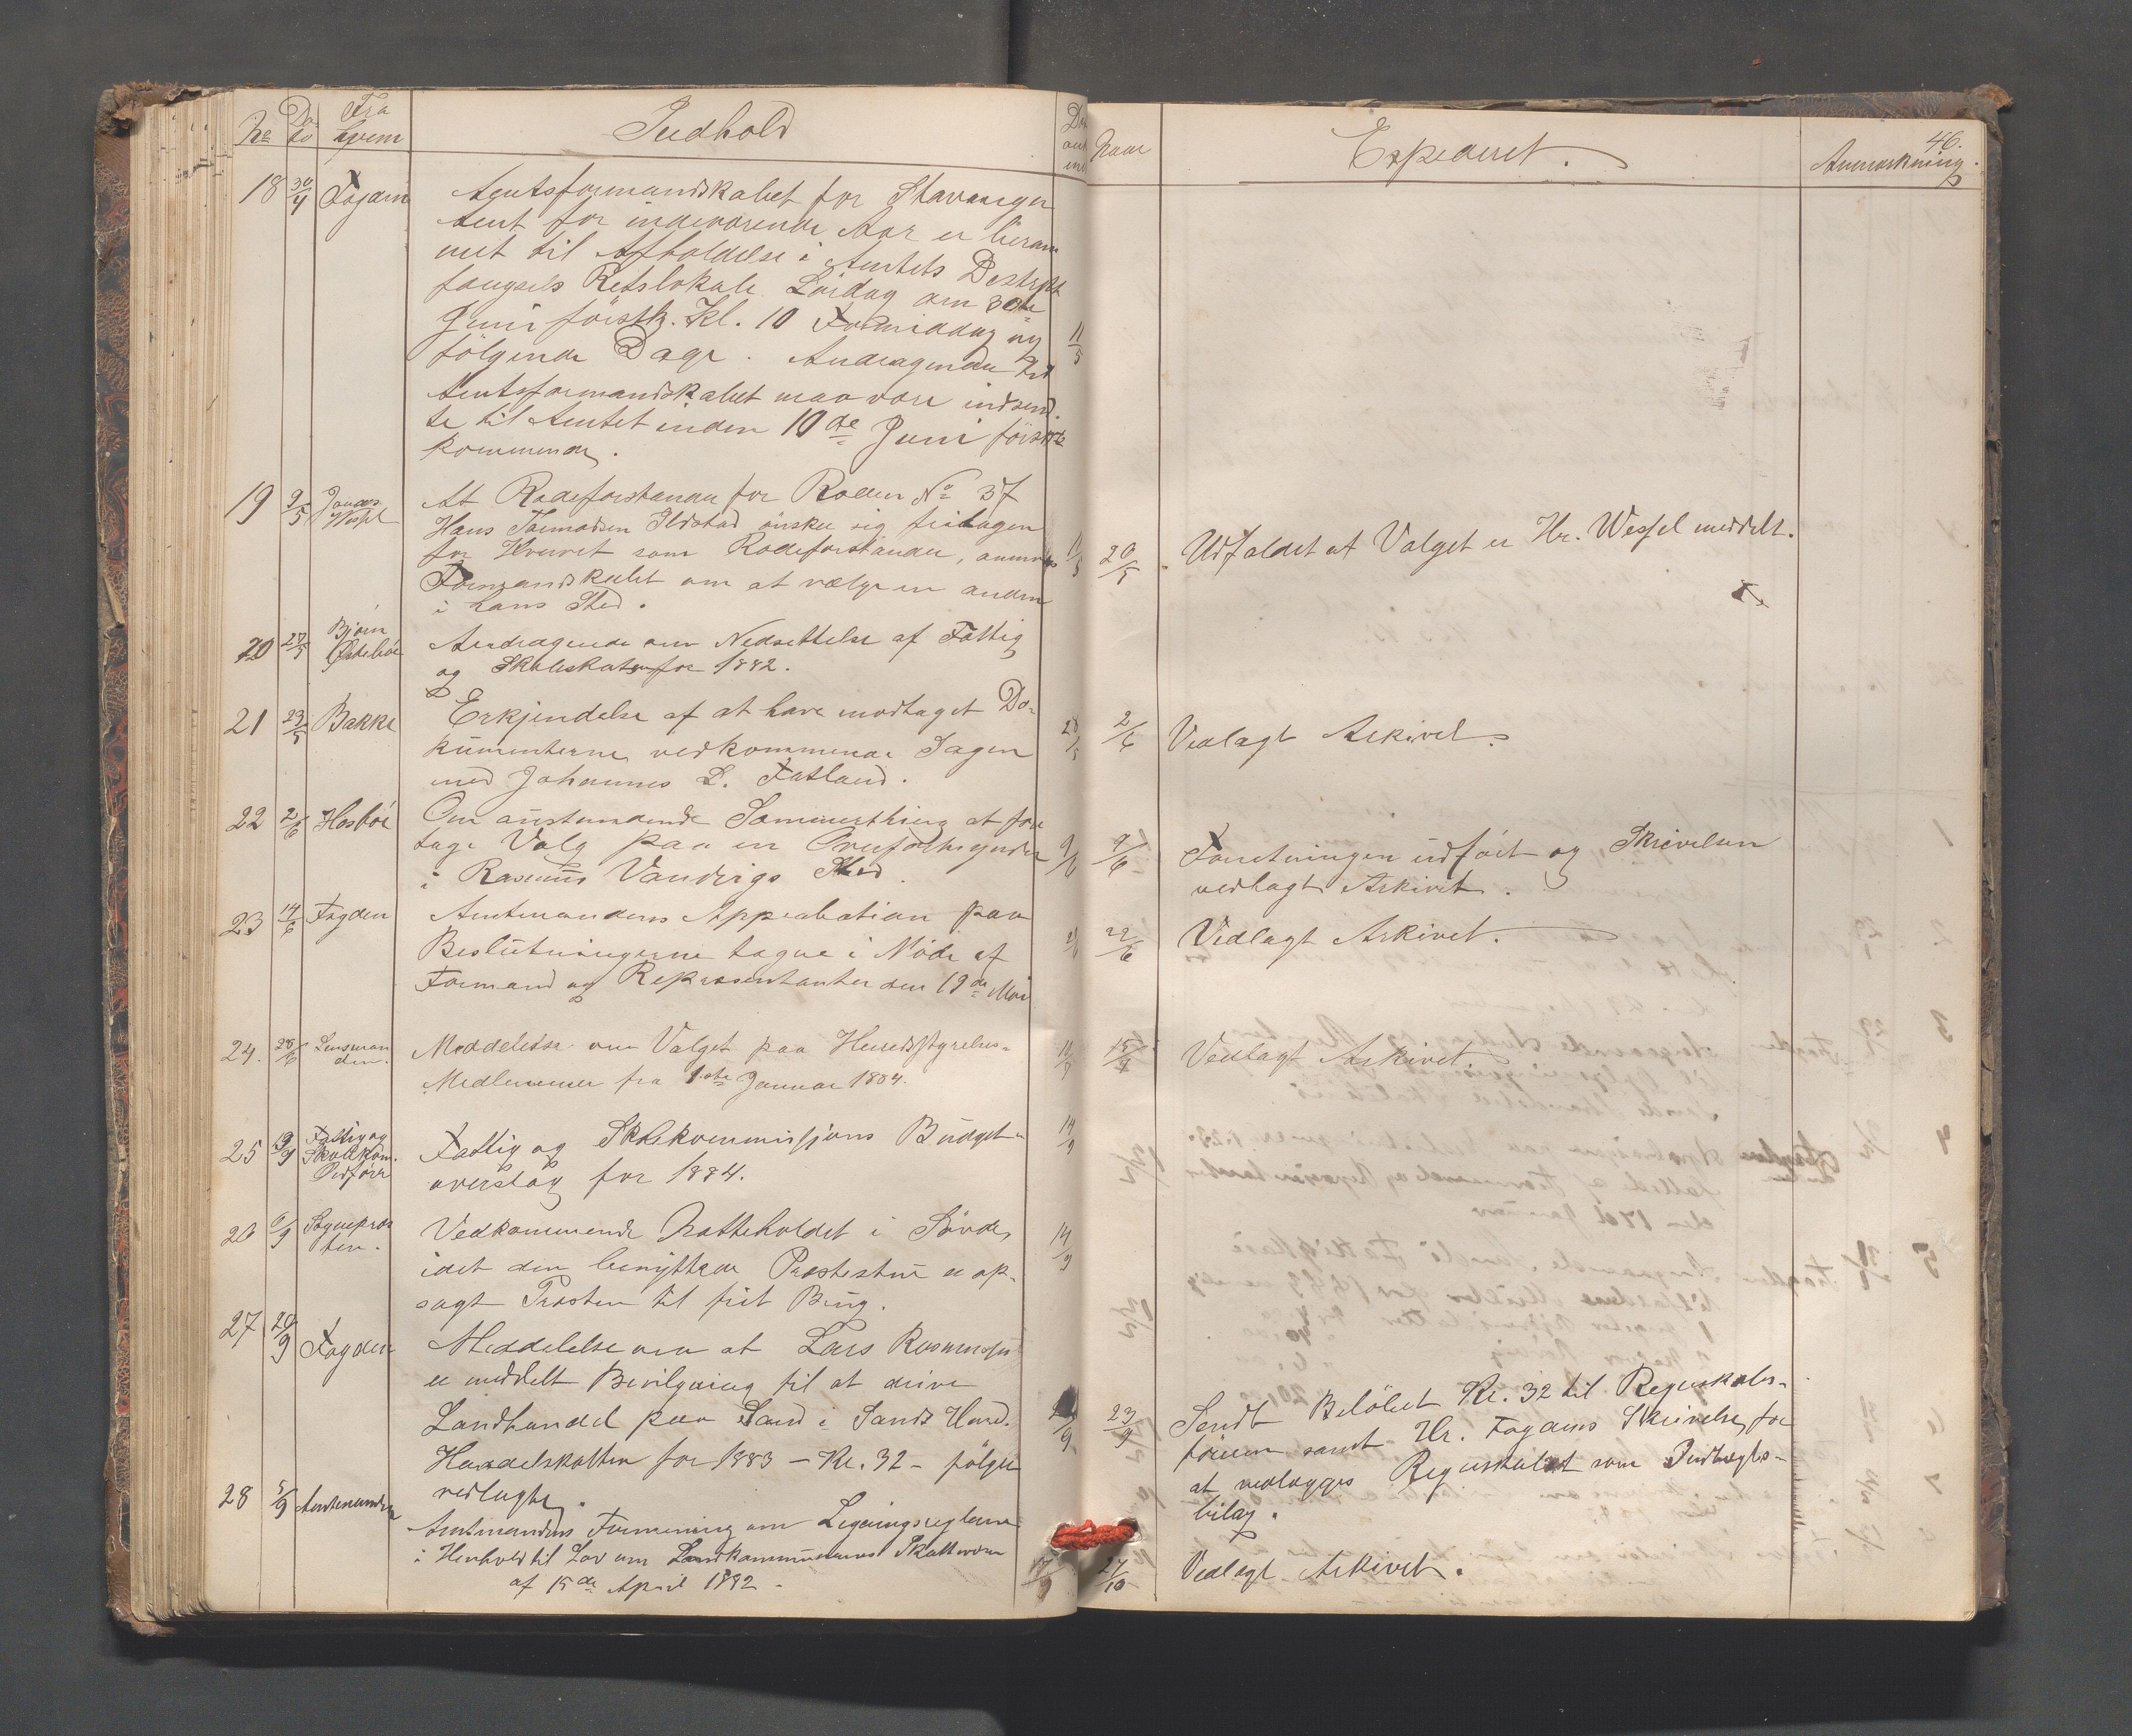 No Da- to Fra hvem Indhold
18 30/4 Fogden Amtsformandskabet for Stavanger
Amt for indeværende Aar er beram
met til Afholdelse i Amtets Distrikts
fængsels Retslokale Lördag den 30te
Juni förstk. Kl. 10 Formiddag og 11/5
fölgende Dage. Andragender til
Amtsformandskabet maa være indsend-
te til Amtet inden 10de Juni förstk
kommende.
19 9/5 Wessel At Rodeforstander for Roden No 37
Hans Ildstad önsker sig fritagen
for Hvervet som Rodeforstander, anmodes 11/5
Formandskabet om at vælge en anden
i hans Sted.
20 27/5 Bjørn Andragende om Nedsættelse af Fattig
og Skoleskatten for 1882.
21 23/5 Bakke Erkjendelse af at have modtaget Do-
kumenterne vedkommende Sagen 28/5
med Johannes L. Fatland.
22 2/6 Hasböe Om anstundende Sommerthing at fore
tage Valg paa en 9/6
i Rasmus Vandvigs Sted.
23 14/6 Fogden Amtmandens Approbation paa
Beslutningerne tagne i Möde af
Formænd og Repræsentanter den 19de Mai
24. 28/6 Lensman den. Meddelelse om Valget paa Herredsstyrelses-
Medlemmer fra 1ste Januar 1884.
25 13/9 Fattig og Skolekom. Ordförer Fattig og Skolekommissjons Budget- 14/9
overslag for 1884.
26 6/9 Sognepræs ten. Vedkommende Natteholdet i Sövde, 14/9
idet den benyttede Prestestue er op-
sagt Præsten til frit Brug.
27 20/9 Fogden Meddelelse om at Lars Rasmussen
er meddelt Bevilgning til at drive
Landhandel paa Sand i Sands Herred.
Handelskatten for 1883 – Kr. 32 – fölger
vedlagt.
28 5/9 Amtmanden Amtmandens Formening om Ligningsreglerne
i Henhold til Lov om Landkommunernes Skattevæsen
af 15de April 1882. 17/9
Naar Expederet. Anmærkning. 46.
20/5 Udfaldet af Valget er Hr. Wessel meddelt.
2/6 Vedlagt Arkivet.
9/6 Forretningen udfört og Skrivelsen
vedlagt Arkivet.
22/6 Vedlagt Arkivet.
Vedlagt Arkivet.
23/9 Sendt Belöbet Kr. 32 til Regnskabs-
föreren samt Hr. Fogdens Skrivelse for
at vedlægges Regnskabet som Indtægts-
bilag.
27/10 Vedlagt Arkivet.